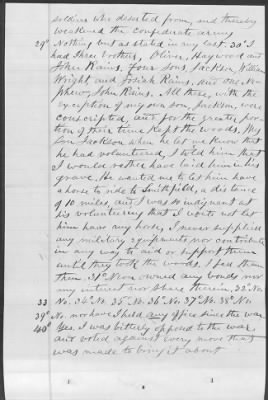 soldiers who deserted from, and thereby
weakened the confederate army
29° Nothing but as stated in my last. 30° I
had three brothers, Oliver, Haywood and
John Rains, four sons, Jackson, William
Wright and Josiah Rains, and one Ne-
phew John Rains. All these, with the
exception of my own son, Jackson, were
conscripted, and for the greater por-
tion of their time kept the woods. My
son Jackson when he let me know that
he had volunteered, I told him that
I would rather have laid him in his
grave. He wanted me to let him have
a horse to ride to Smithfield, a distance
of 10 miles, and I was so indignant at
his volunteering that I would not let
him have my horse, I never supplied
any military equipments nor contributed
in any way to aid or support them
until they took the woods I fed them
then. 31° Never owned any bonds nor
any interest nor share therein. 32° No
33 No. 34° No. 35° No. 36° No. 37° No. 38° No.
39° No. nor have I held any office since the war.
40° Yes. I was bitterly opposed to the war,
and voted against every move that
was made to bring it about